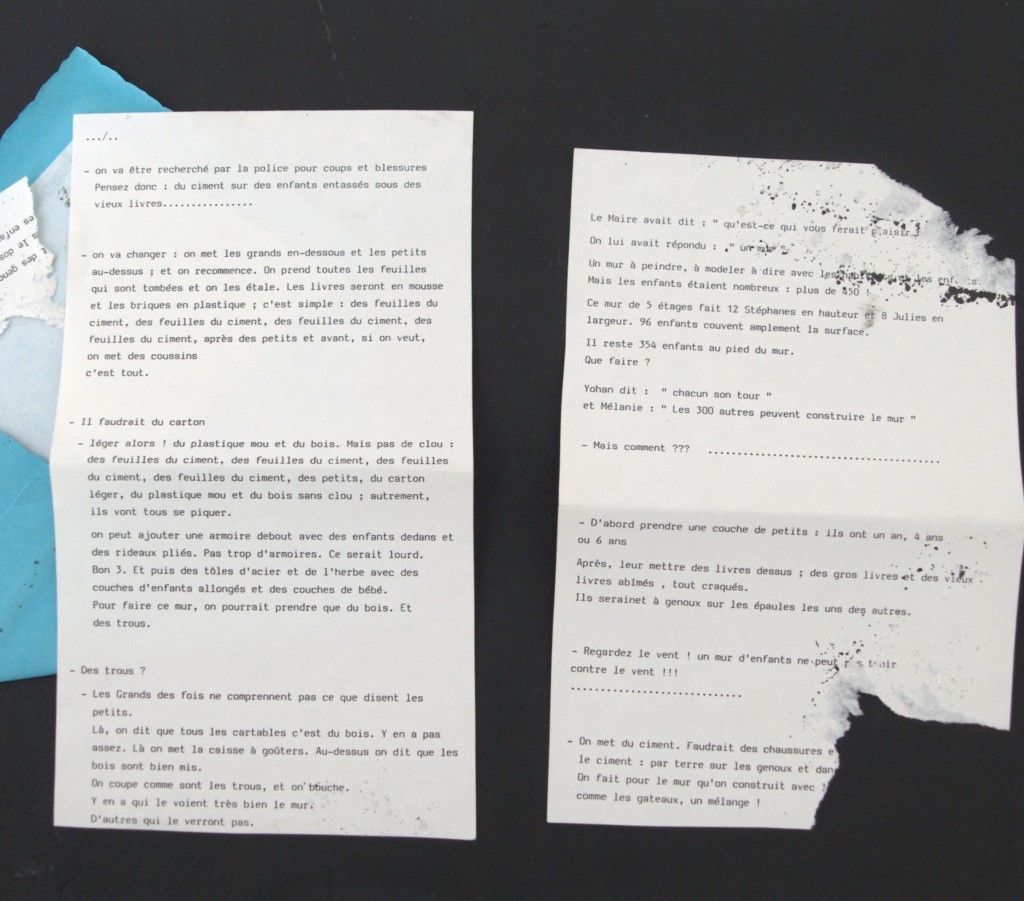 .../..
- on va être recherché par la police pour coups et blessures
Pensez donc : du ciment sur des enfants entassés sous des
vieux livres................
- on va changer : on met les grands en-dessous et les petits
au-dessus ; et on recommence. On prend toutes les feuilles
qui sont tombées et on les étale. Les livres seront en mousse
et les briques en plastique ; c'est simple : des feuilles du
ciment, des feuilles du ciment, des feuilles du ciment, des
feuilles du ciment, après des petits et avant, si on veut,
on met des coussins
c'est tout.
- Il faudrait du carton
- léger alors ! du plastique mou et du bois. Mais pas de clou :
des feuilles du ciment, des feuilles du ciment, des feuilles
du ciment, des feuilles du ciment, des petits, du carton
léger, du plastique mou et du bois sans clou ; autrement,
ils vont tous se piquer.
on peut ajouter une armoire debout avec des enfants dedans et
des rideaux pliés. Pas trop d'armoires. Ce serait lourd.
Bon 3. Et puis des tôles d'acier et de l'herbe avec des
couches d'enfants allongés et des couches de bébé.
Pour faire ce mur, on pourrait prendre que du bois. Et
des trous.
- Des trous ?
- Les Grands des fois ne comprennent pas ce que disent les
petits.
Là, on dit que tous les cartables c'est du bois. Y en a pas
assez. Là on met la caisse à goûters. Au-dessus on dit que les
bois sont bien mis.
On coupe comme sont les trous, et on bouche.
Y en a qui le voient très bien le mur.
D'autres qui le verront pas.
Le Maire avait dit : " qu'est-ce qui vous ferait plaisir
On lui avait répondu : " un mur "
Un mur à peindre, à modeler à dire avec les
Mais les enfants étaient nombreux : plus de 450 !
Ce mur de 5 étages fait 12 Stéphanes en hauteur et 8 Julies en
largeur. 96 enfants couvent amplement la surface.
Il reste 354 enfants au pied du mur.
Que faire ?
Yohan dit : " chacun son tour "
et Mélanie : " Les 300 autres peuvent construire le mur "
- Mais comment ??? ......................................
- D'abord prendre une couche de petits : ils ont un an, 4 ans
ou 6 ans
Après, leur mettre des livres dessus ; des gros livres et des vieux
livres abîmés , tout craqués.
Ils serainet à genoux sur les épaules les uns des autres.
- Regardez le vent ! un mur d'enfants ne peut
contre le vent !!!
............................
- On met du ciment. Faudrait des chaussures
le ciment : par terre sur les genoux et
On fait pour le mur qu'on construit avec
comme les gateaux, un mélange !